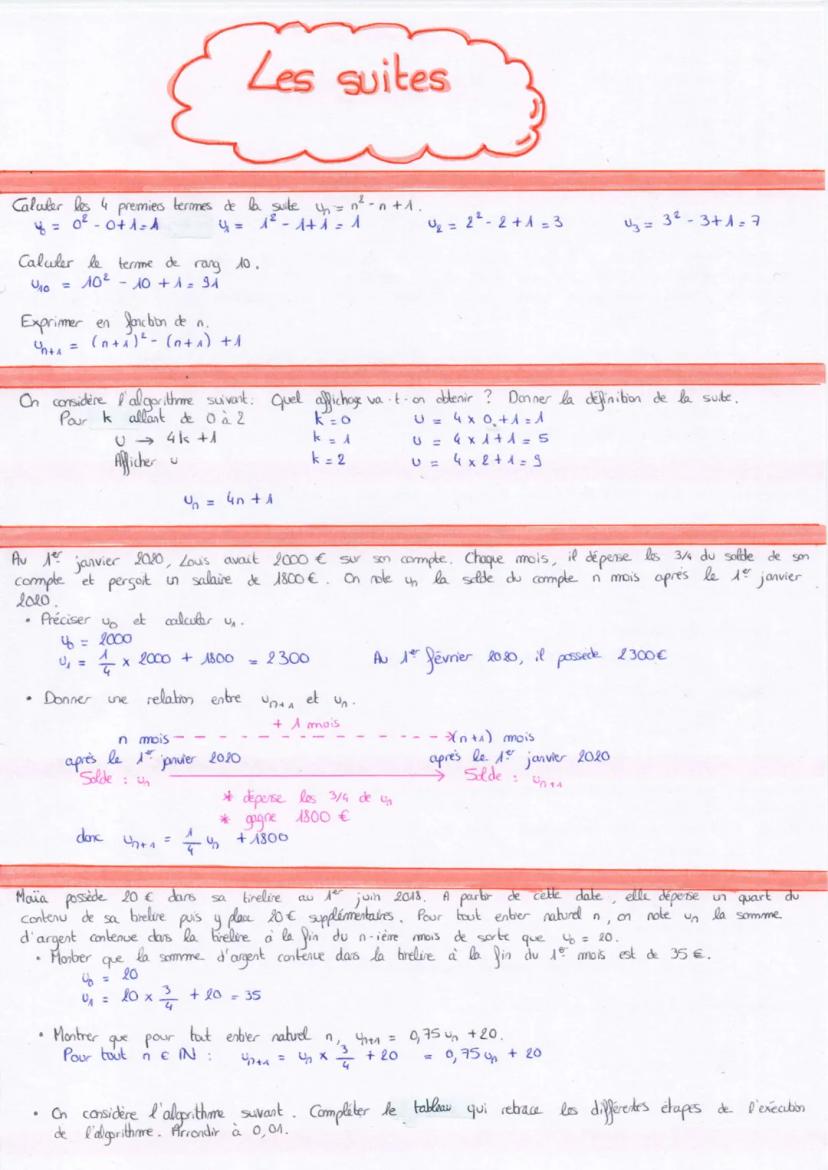 Les suites
Calculer les 4 premiers termes de la suite uₙ = n² - n + 1.
u₀ = 0² - 0 + 1 = 1 u₁ = 1² - 1 + 1 = 1 u₂ = 2² - 2 + 1 = 3 u₃ = 3² - 3 + 1 = 7
Calculer le terme de rang 10.
u₁₀ = 10² - 10 + 1 = 91
Exprimer en fonction de n.
uₙ₊₁ = (n+1)² - (n+1) + 1
On considère l'algorithme suivant. Quel affichage va-t-on obtenir ? Donner la définition de la suite.
Pour k allant de 0 à 2 k = 0 u = 4 x 0 + 1 = 1
u → 4k + 1 k = 1 u = 4 x 1 + 1 = 5
Afficher u k = 2 u = 4 x 2 + 1 = 9
uₙ = 4n + 1
Au 1er janvier 2020, Louis avait 2000 € sur son compte. Chaque mois, il dépense les 3/4 du solde de son
compte et perçoit un salaire de 1800 €. On note uₙ la solde du compte n mois après le 1er janvier
2020.
• Préciser u₀ et calculer u₁.
u₀ = 2000
u₁ = 1/4 x 2000 + 1800 = 2300 Au 1er février 2020, il possède 2300€
• Donner une relation entre uₙ₊₁ et uₙ.
+ 1 mois
n mois (n+1) mois
après le 1er janvier 2020 après le 1er janvier 2020
Solde : uₙ Solde : uₙ₊₁
* dépense les 3/4 de uₙ
* gagne 1800 €
donc uₙ₊₁ = 1/4 uₙ + 1800
Maïa possède 20 € dans sa tirelire au 1er juin 2018. A partir de cette date, elle dépense un quart du
contenu de sa tirelire puis y place 20€ supplémentaires. Pour tout entier naturel n, on note uₙ la somme
d'argent contenue dans la tirelire à la fin du n-ième mois de sorte que u₀ = 20.
• Montrer que la somme d'argent contenue dans la tirelire à la fin du 1er mois est de 35 €.
u₀ = 20
u₁ = 20 x 3/4 + 20 = 35
• Montrer que pour tout entier naturel n, uₙ₊₁ = 0,75 uₙ + 20.
Pour tout n ∈ ℕ : uₙ₊₁ = uₙ x 3/4 + 20 = 0,75 uₙ + 20
• On considère l'algorithme suivant. Compléter le tableau qui retrace les différentes étapes de l'exécution
de l'algorithme. Arrondir à 0,01.